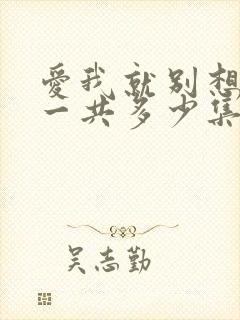 爱我就别想
一共多少集
吴志勤